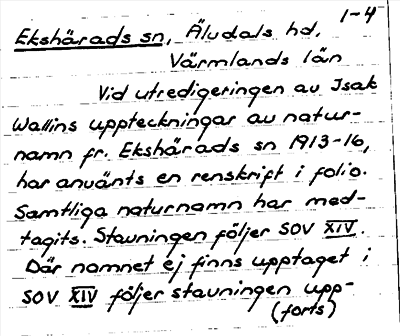 1-4
Ekshärads sn, Äludals hd,
Värmlands län
Vid utredigeringen av Isak
Wallins uppteckningar av natur-
namn fr. Ekshärads sn 1913-16,
har använts en renskrift i folio.
Samtliga naturnamn har med-
tagits. Stavningen följer SOV XIV.
Där namnet ej finns upptaget i
SOV XIV följer stavningen upp-
(forts)